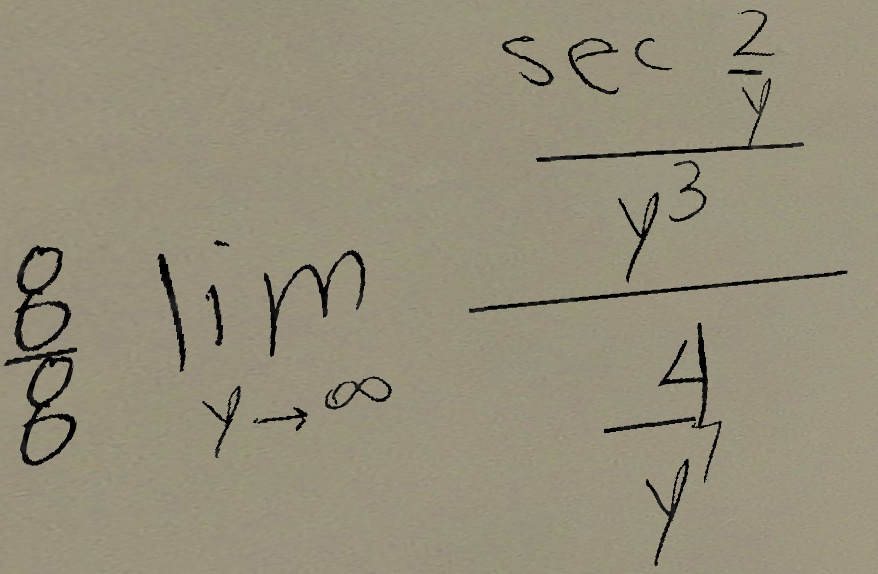 \frac{8}{8} \lim_{y \to \infty} \frac{\frac{\sec \frac{2}{y}}{y^3}}{\frac{4}{y^7}}